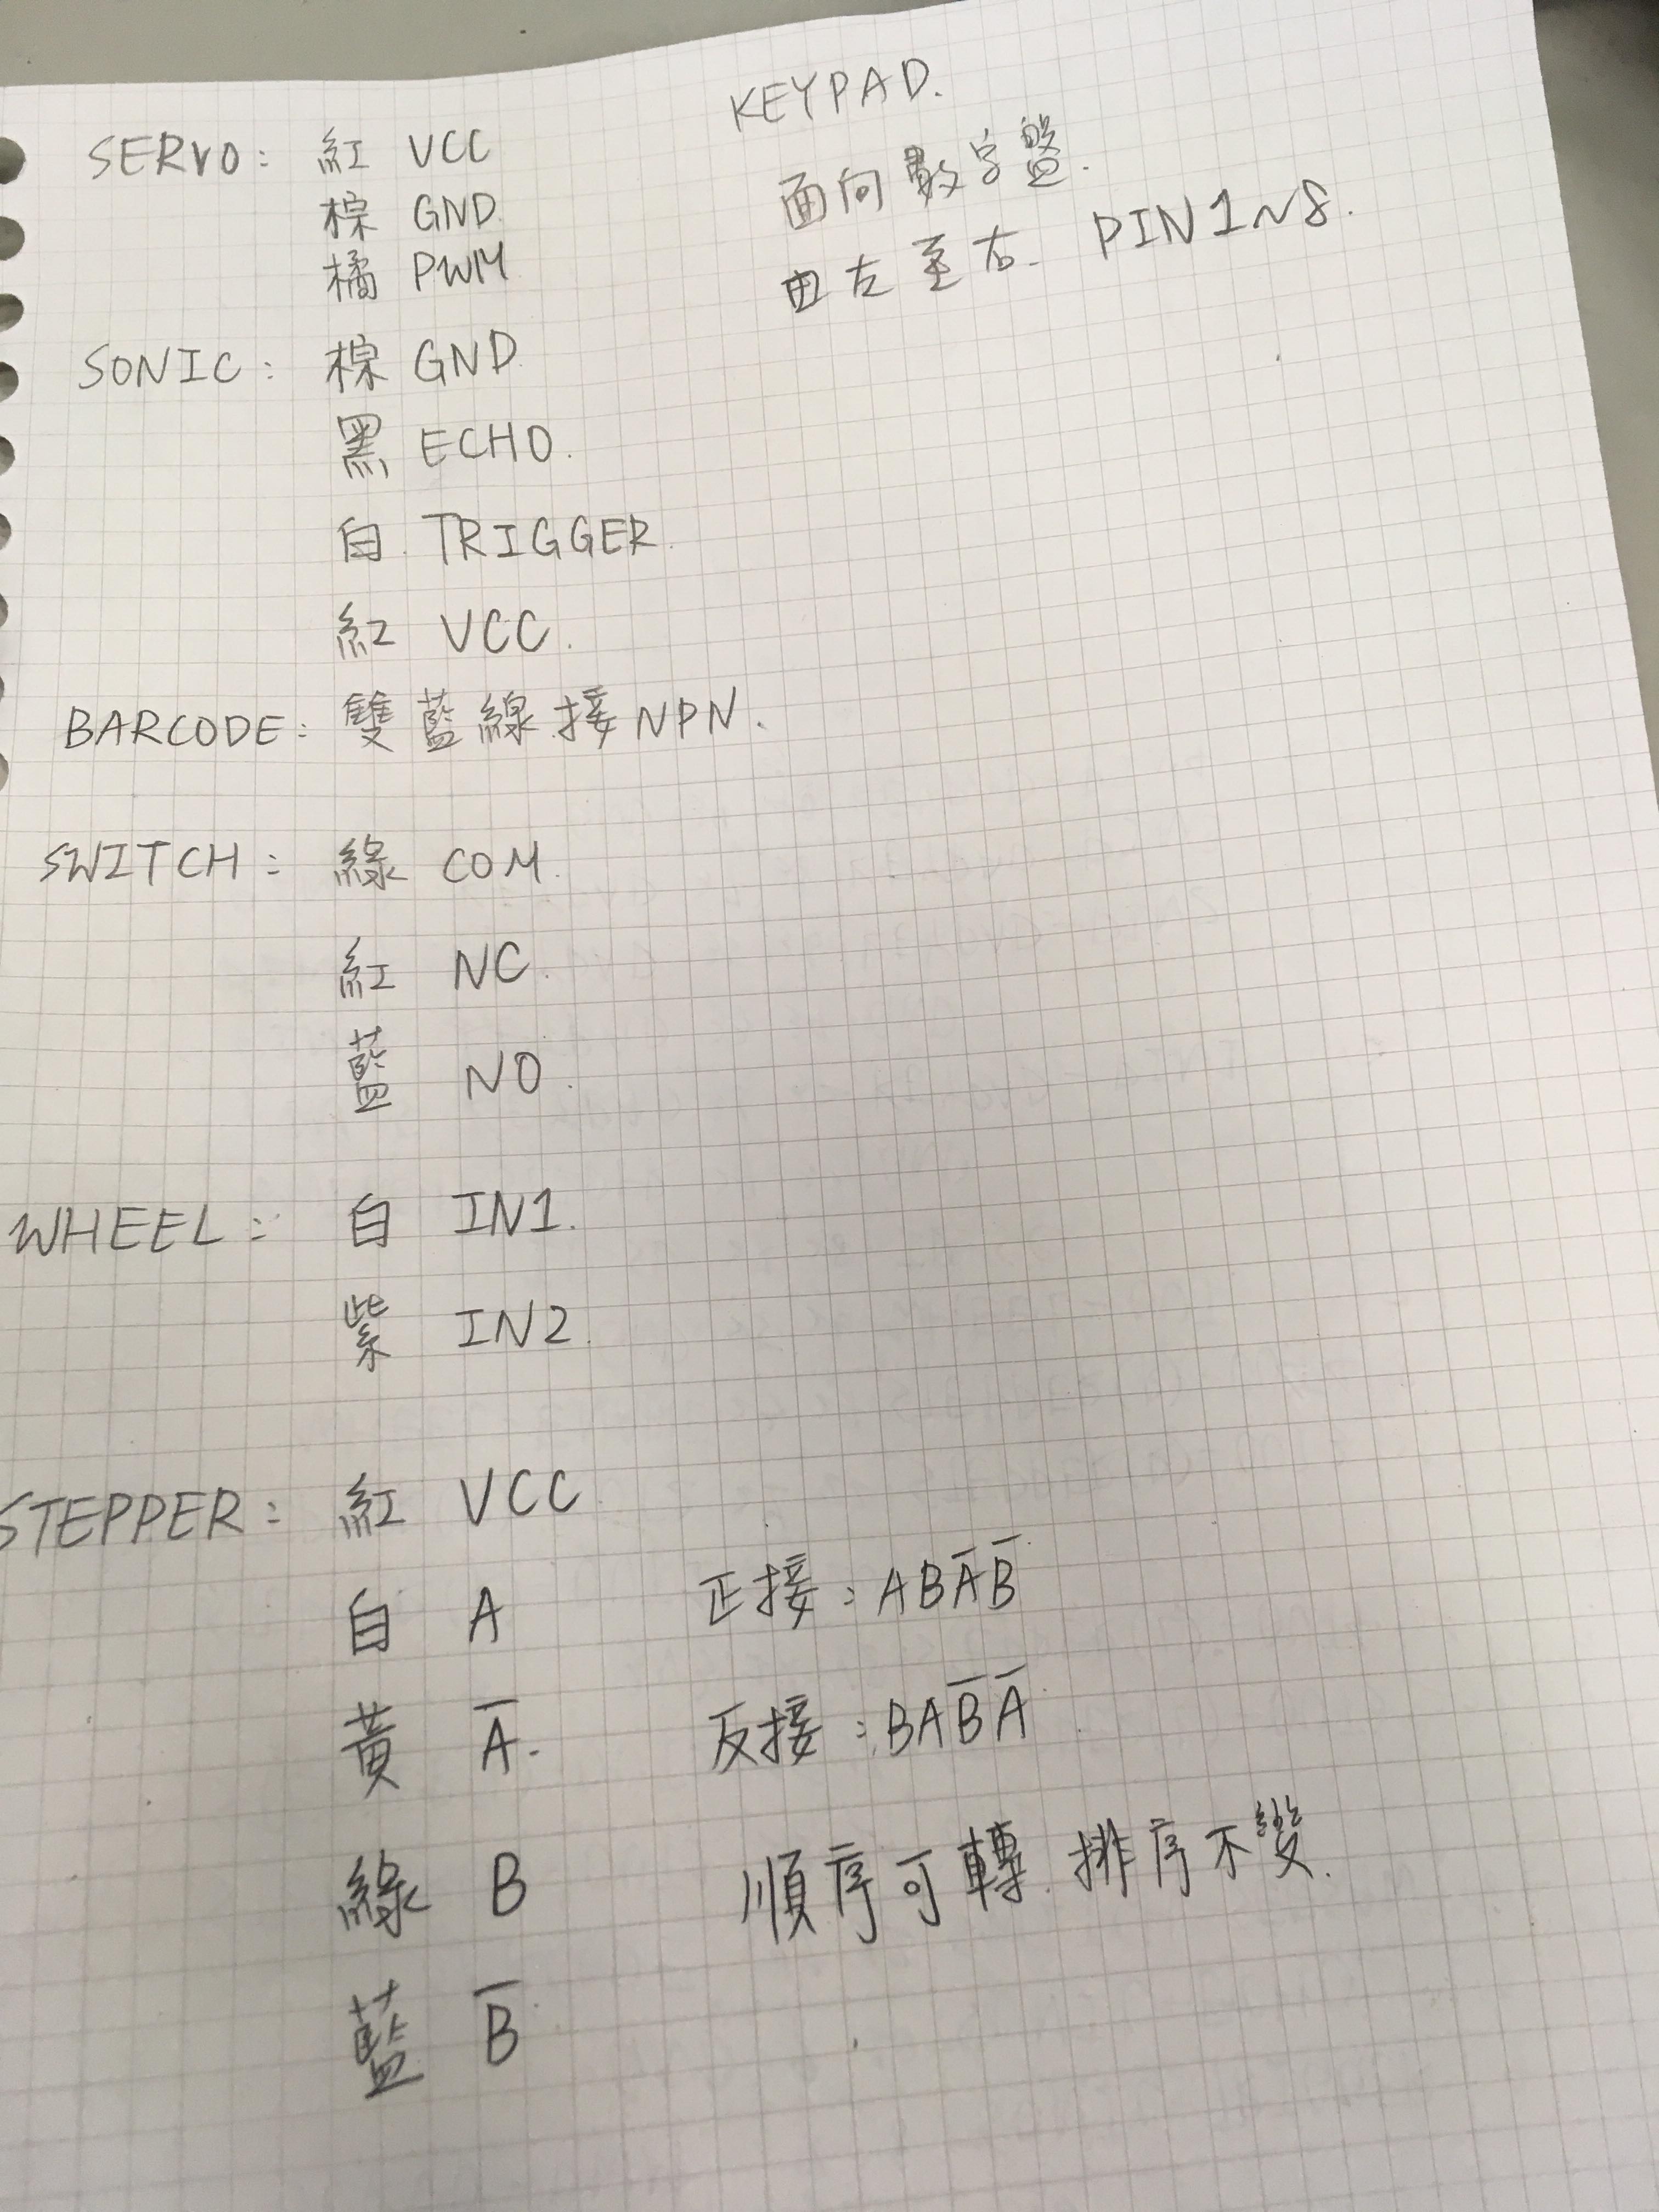 SERVO: 紅 VCC
棕 GND
橘 PWM
KEYPAD.
面向數字盤.
由左至右. PIN1~8.
SONIC: 棕 GND
黑 ECHO.
白 TRIGGER
紅 VCC.
BARCODE: 雙藍線接NPN.
SWITCH: 綠 COM.
紅 NC.
藍 NO.
WHEEL: 白 IN1.
紫 IN2.
STEPPER: 紅 VCC
白 A
正接: ABA̅B̅
黃 A̅.
反接: BAB̅A̅
綠 B
順序可轉.排序不變.
藍 B̅